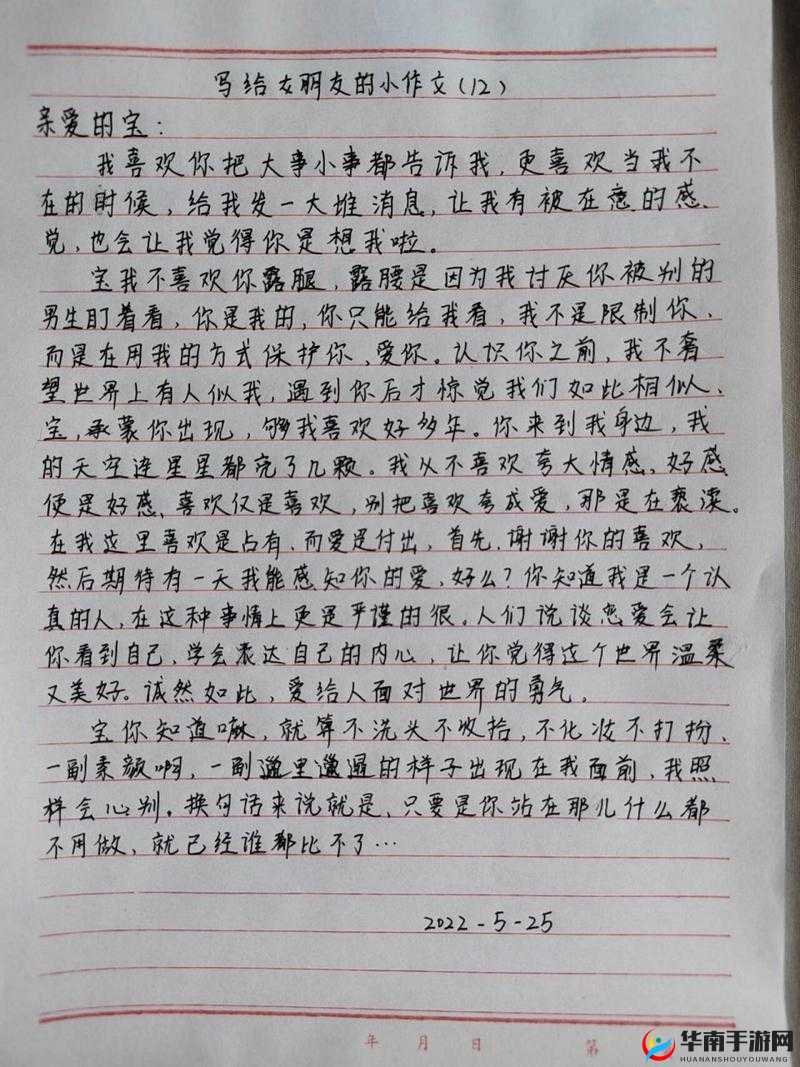 写给女朋友的小作文(12)
亲爱的宝:
我喜欢你把大事小事都告诉我,更喜欢当我不
在的时候,给我发一大堆消息,让我有被在意的感
觉,也会让我觉得你是想我啦。
宝我不喜欢你露腿,露腰是因为我讨厌你被别的
男生盯着看,你是我的,你只能给我看,我不是限制你,
而是在用我的方式保护你、爱你。认识你之前,我不奢
望世界上有人似我,遇到你后才惊觉我们如此相似、
宝,承蒙你出现,够我喜欢好多年。你来到我身边,我
的天空连星星都亮了几颗。我从不喜欢夸大情感、好感
便是好感、喜欢仅是喜欢,别把喜欢夸成爱,那是在亵渎。
在我这里喜欢是占有、而爱是付出,首先、谢谢你的喜欢,
然后期待有一天我能感知你的爱,好么?你知道我是一个认
真的人,在这种事情上更是严谨的很。人们说谈恋爱会让
你看到自己、学会表达自己的内心,让你觉得这个世界温柔
又美好。诚然如此,爱给人面对世界的勇气。
宝你知道嘛,就算不洗头不收拾,不化妆不打扮、
一副素颜啊,一副邋里邋遢的样子出现在我面前,我照
样会心别。换句话来说就是,只要是你站在那儿什么都
不用做、就已经谁都比不了…
2022-5-25
年 月 日 第
华南手游网
HUANANSHOUYOUWANG